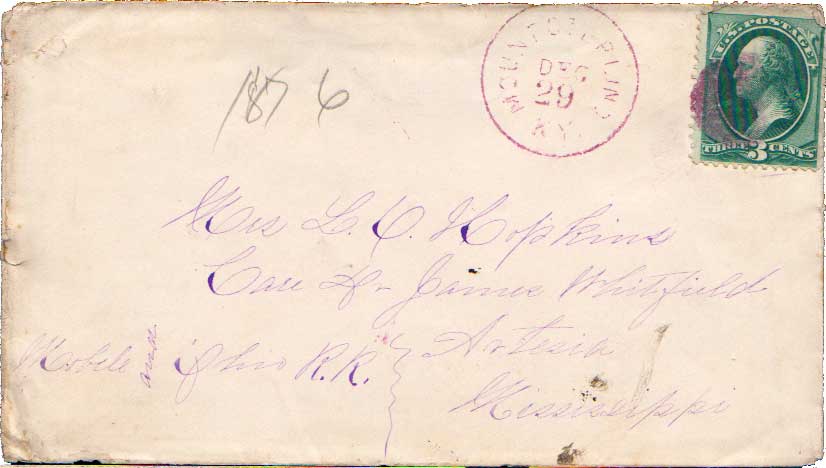 MOUNT STERLING
DEC
29
KY.
U.S. POSTAGE
THREE 3 CENTS
1876
Mrs L. C. Hopkins
Care Dr James Whitfield
Mobile and Ohio R.R. } Artesia
Mississippi